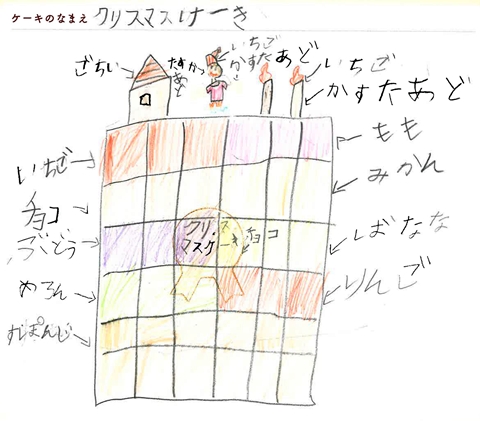 ケーキのなまえ クリスマスけーき
ざちい
かすたあど
いちご
かすたあど
いちご
かすたあど
いちご
チョコ
ぶどう
めろん
すぽんじ
もも
みかん
ばなな
りんご
クリス
マスケーき
チョコ